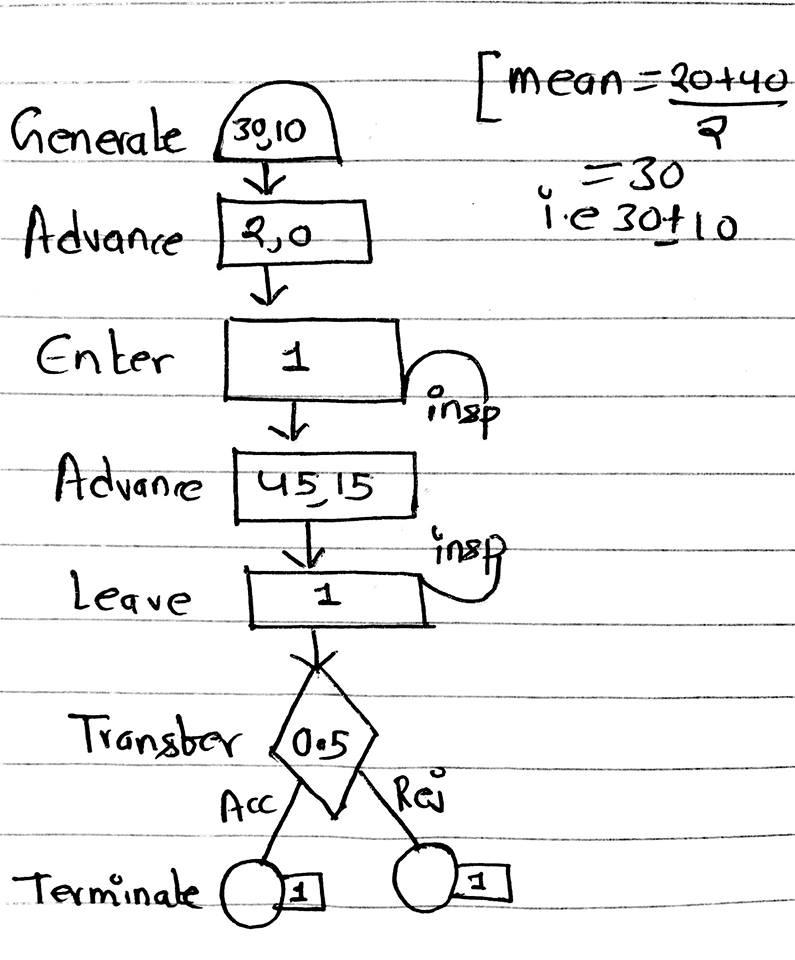 [mean = 20+40
2
= 30
i.e 30±10
Generate 30,10
Advance 2,0
Enter 1
insp
Advance 45,15
insp
Leave 1
Transfer 0.5
Acc Rej
Terminate 1 1